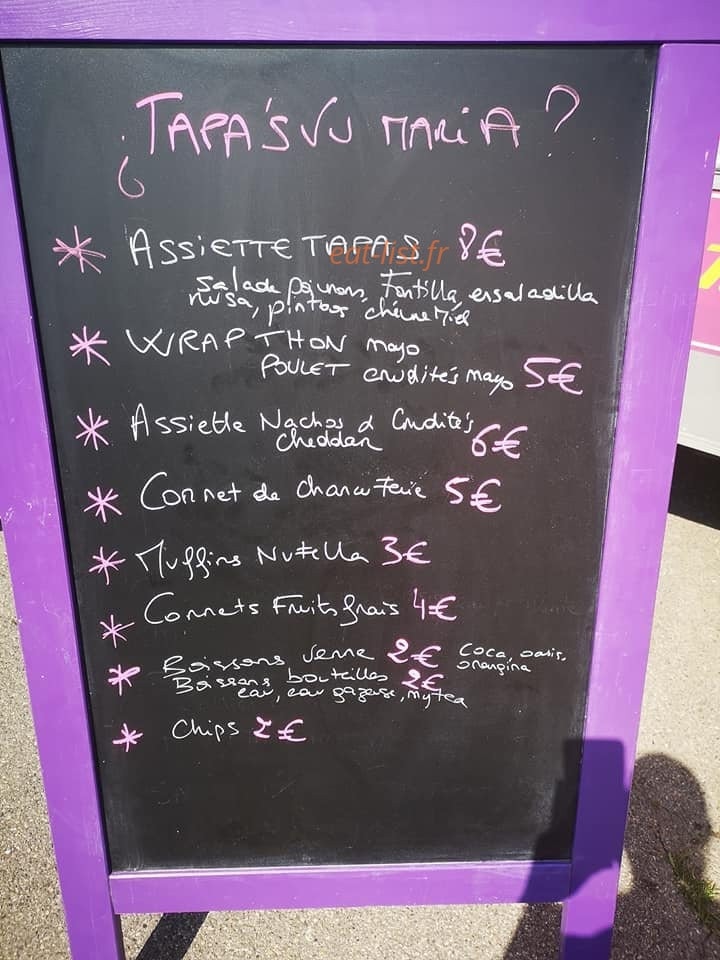 ¿TAPA'S VU MARiA?
* ASSiETTE TAPAS 8€
eat-list.fr
Salade poivrons, Tortilla, ensaladilla
rusa, pintxos chèvre Miel
* WRAP THON mayo
POULET crudités mayo 5€
* Assiette Nachos & Crudités
cheddar 6€
* Cornet de charcuterie 5€
* Muffins Nutella 3€
* Cornets Fruits frais 4€
* Boissons verre 2€ Coca, oasis,
orangina
Boissons bouteilles 2€
eau, eau gazeuse, mytea
* Chips 2€